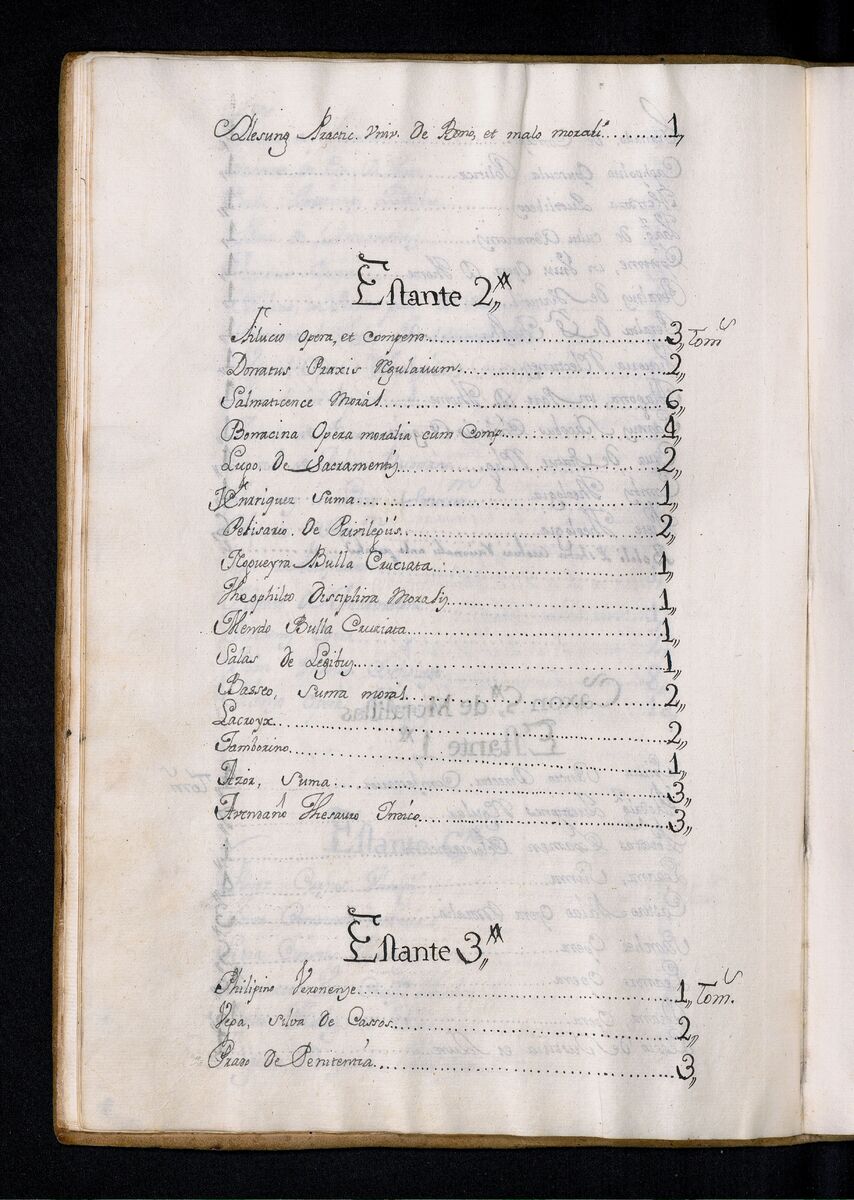 Practic. Univ. De Bono, et malo morali.......... 1,,
Estante 2,,
Filucio Opera, et Compen.......... 3,, Tom.s
Donatus Praxis Regularium.......... 2,,
Salmaticence Moral.......... 6,,
Bonacina Opera moralia cum Comp.......... 4,,
Lugo, De Sacramentis.......... 2,,
Henrriquez Suma.......... 1,,
De Privilegiis.......... 2,,
Nogueyra Bulla Cruciata.......... 1,,
Theophilto Disciplina Moralis.......... 1,,
Mendo Bulla Cruciata.......... 1,,
Salas de Legibus.......... 1,,
Basseo, Suma moral.......... 2,,
Lacroyx.......... 2,,
Tamborino.......... 1,,
Azor, Suma.......... 3,,
Avendaño Thesauro Indico.......... 3,,
Estante 3,,
Philipino Veronense.......... 1,, Tom.s
Vega, Silva de Cassos.......... 2,,
Prado de Penitentia.......... 3,,